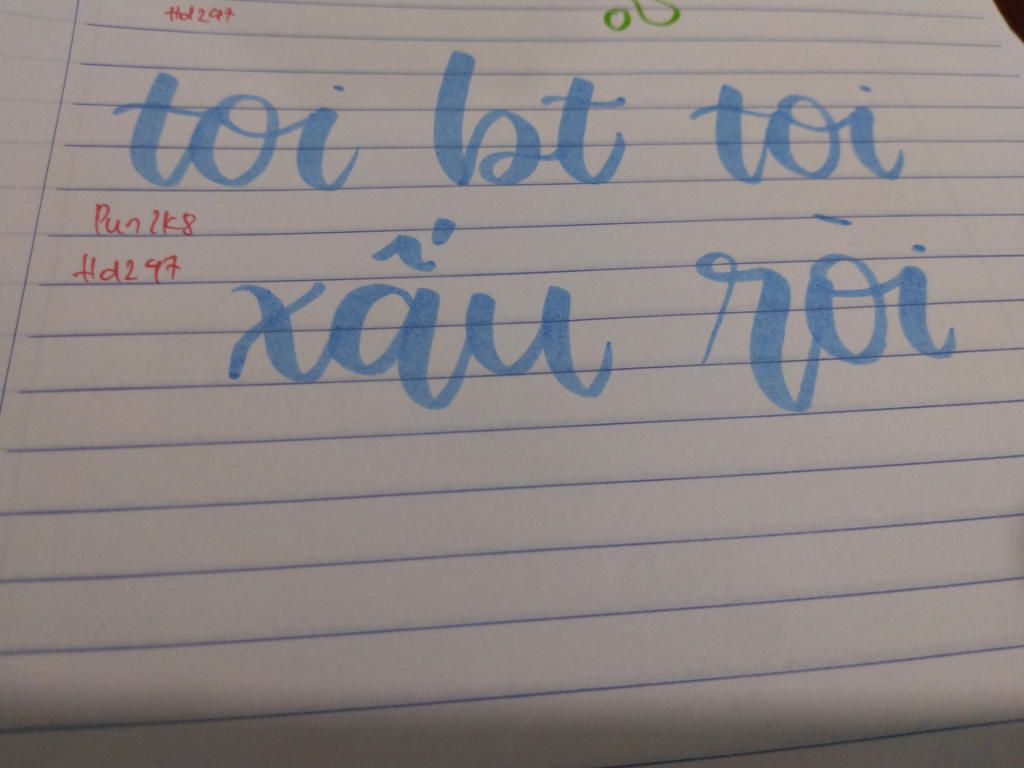 Hd297
toi bt toi
Pun2k8
Hd297
xấu ròi